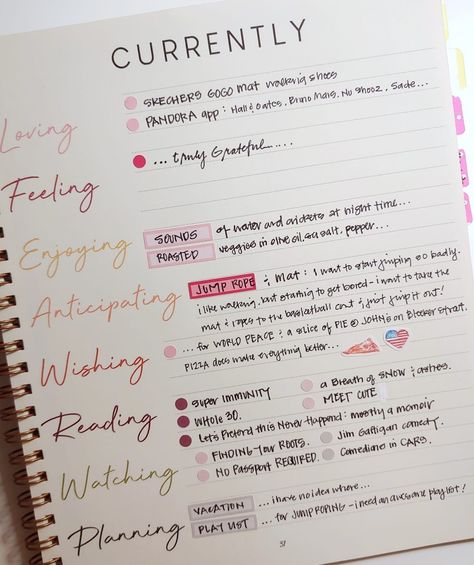 CURRENTLY
Loving
SKECHERS GOGO mat walking shoes
PANDORA app : Hall & Oates, Bruno Mars, Nu Shooz, Sade...
Feeling
... truly Grateful.....
Enjoying
SOUNDS of water and crickets at night time...
ROASTED veggies in olive oil, sea salt, pepper...
Anticipating
JUMP ROPE & mat : I want to start jumping so badly.
i like walking, but starting to get bored - i want to take the
mat & ropes to the basketball court & just jump it out!
Wishing
... for WORLD PEACE & a slice of PIE @ JOHN'S on Bleecker Street.
PIZZA does make everything better...
Reading
Super Immunity
a Breath of SNOW & ashes.
Whole 30.
MEET CUTE
Let's Pretend this Never Happened : mostly a memoir
Watching
FINDING Your ROOTS.
Jim Gaffigan comedy.
No Passport REQUIRED.
Comedians in CARS.
Planning
VACATION ... i have no idea where...
PLAY LIST ... for JUMP ROPING - i need an awesome playlist!
37